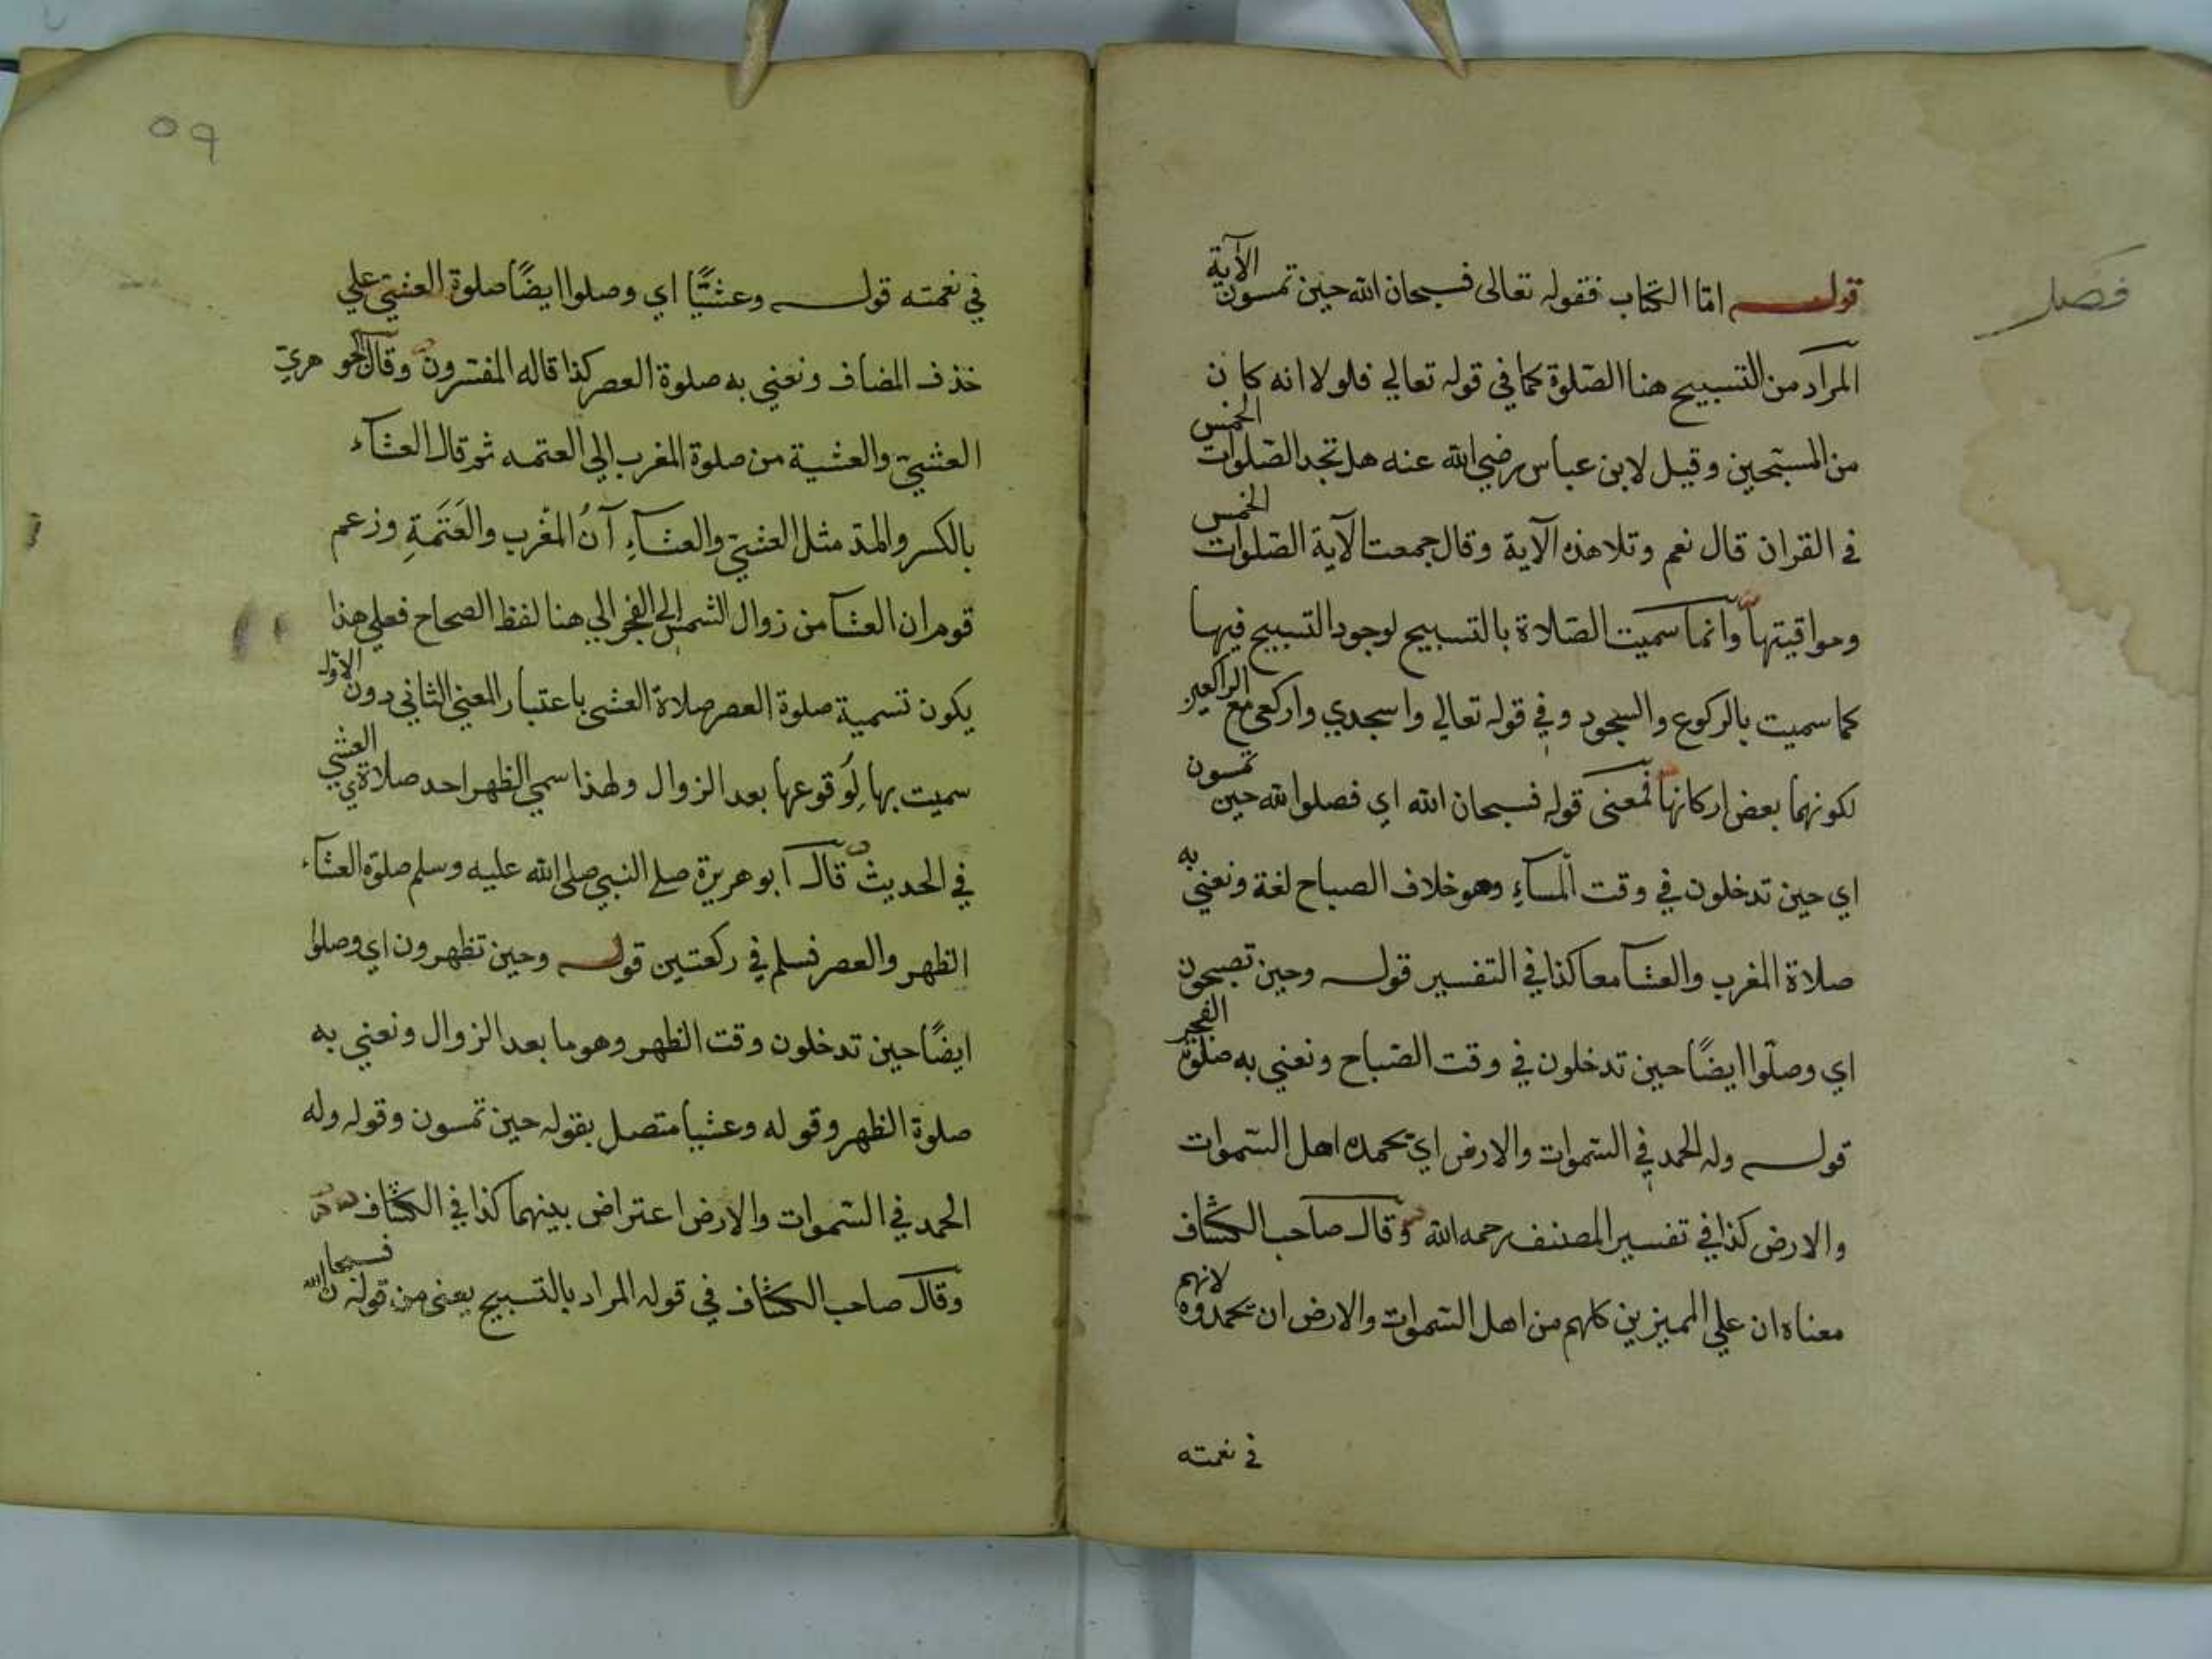 فصل
قوله امّا الكتاب فقوله تعالى فسبحان الله حين تمسون الآية
المراد من التسبيح هنا الصّلوة كما في قوله تعالي فلولا انه كان
من المسبّحين وقيل لابن عباس رضي الله عنه هل تجد الصّلوات الخمس
في القران قال نعم وتلا هذه الآية وقال جمعت الآية الصّلوات الخمس
ومواقيتها وانما سميت الصّلاة بالتسبيح لوجود التسبيح فيها
كما سميت بالركوع والسجود وفي قوله تعالي واسجدي واركعي مع الراكعين
لكونهما بعض اركانها فمعنى قوله فسبحان الله اي فصلوا لله حين تمسون
اي حين تدخلون في وقت المسآءِ وهو خلاف الصباح لغة ونعني به
صلاة المغرب والعشآ معا كذا في التفسير قوله وحين تصبحون
اي وصلّوا ايضًا حين تدخلون في وقت الصّباح ونعني به صلوة الفجر
قوله وله الحمد في السّموات والارض اي تحمده اهل السّموات
والارض كذا في تفسير المصنف رحمه الله وقال صاحب الكشاف
معناه ان علي المميزين كلهم من اهل السّموات والارض ان يحمدوه لانهم
في نعمته
٥٩
في نعمته قوله وعشيًّا اي وصلوا ايضًا صلوة العشيّ علي
حذف المضاف ونعني به صلوة العصر كذا قاله المفسّرون وقال الجوهريّ
العشيّ والعشية من صلوة المغرب الي العتمه ثم قال العشآء
بالكسر والمدّ مثل العشيّ والعشآءِ آنُ المغْرب والعَتَمَةِ وزعم
قوم ان العشآ من زوال الشمس الي الفجر الي هنا لفظ الصحاح فعلي هذا
يكون تسمية صلوة العصر صلاة العشي باعتبار المعني الثاني دون الاوّل
سميت بها لِوقوعها بعد الزوال ولهذا سمي الظهر احد صلاتي العشي
في الحديث قال ابو هريرة صلے النبي صلى الله عليه وسلم صلوة العشآء
الظهر والعصر فسلم في ركعتين قوله وحين تظهرون اي وصلوا
ايضًا حين تدخلون وقت الظهر وهو ما بعد الزوال ونعني به
صلوة الظهر وقوله وعشيا متصل بقوله حين تمسون وقوله وله
الحمد في السّموات والارض اعتراض بينهما كذا في الكشاف
وقال صاحب الكشاف في قوله المراد بالتسبيح يعني من قوله فسبحان الله